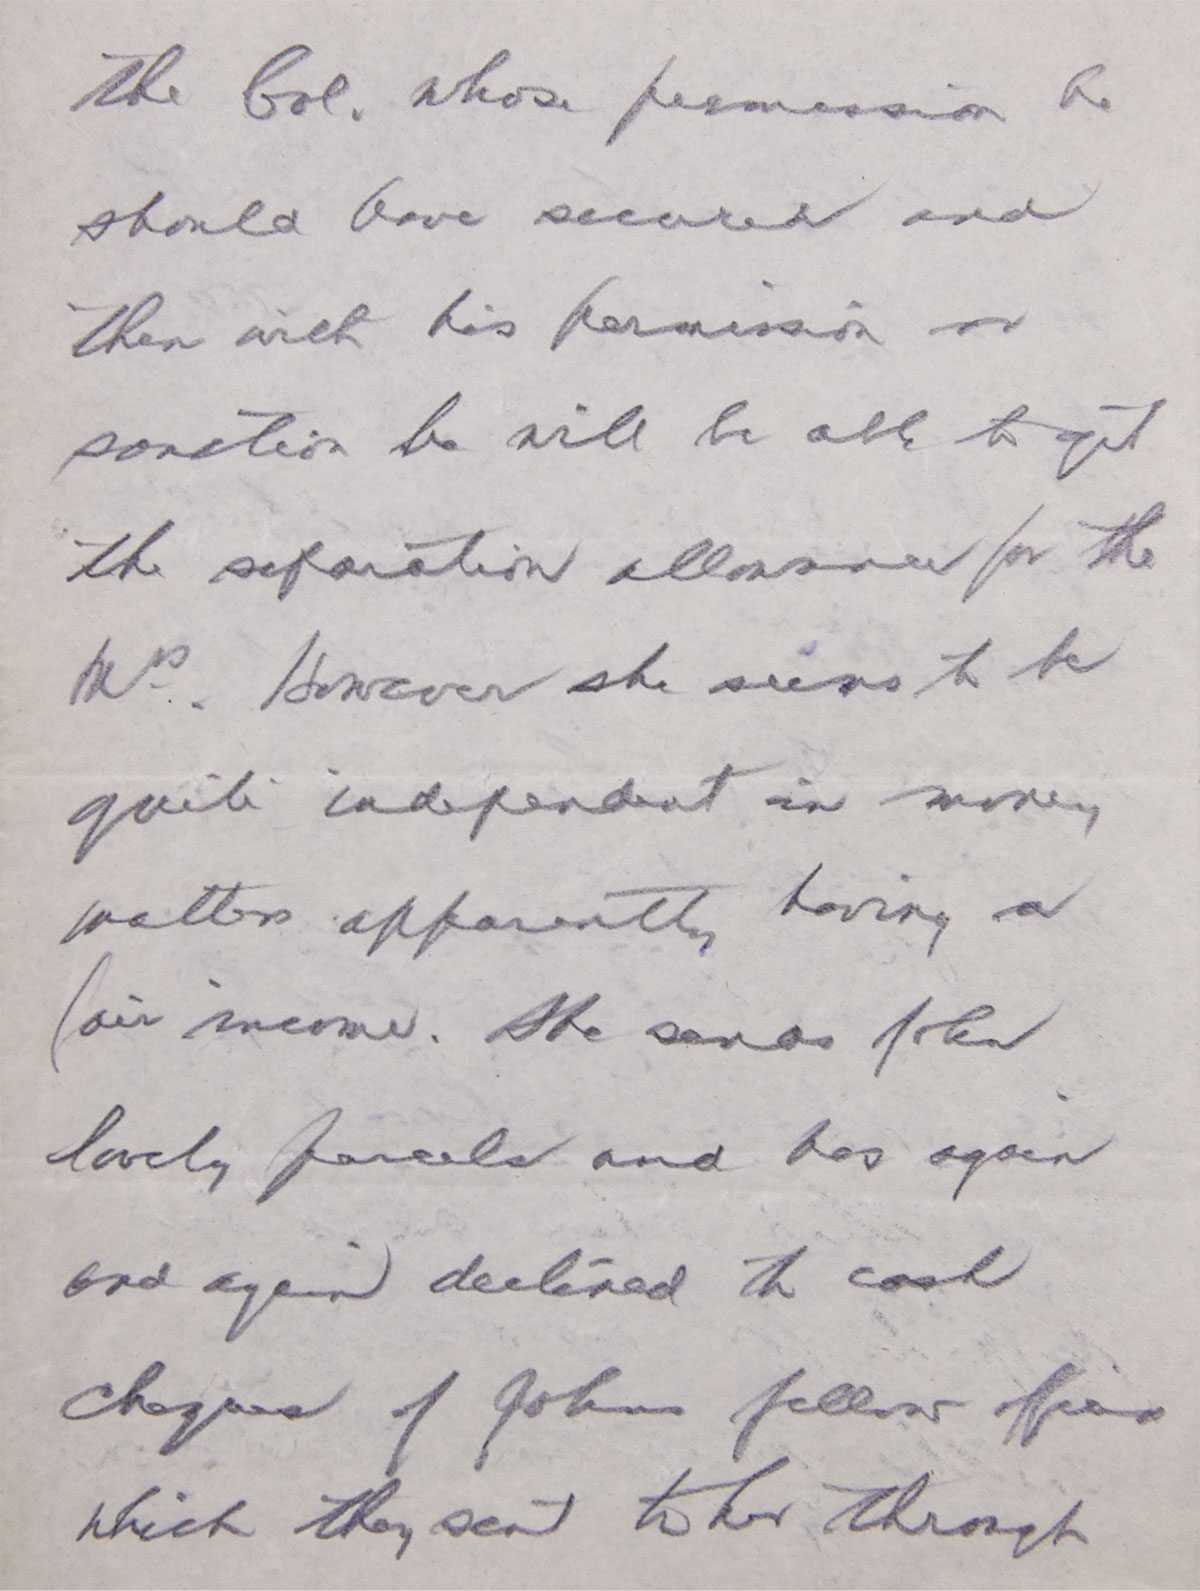 the Col. whose permession he
should have secured and
then with his permission or
sanction he will be able to get
the separation allowance for the
Mrs. However she seems to be
quite independent in money
matters apparently having a
fair income. She sends John
lovely parcels and has again
and again declined to cash
cheques of Johns fellow officers
which they sent to her through